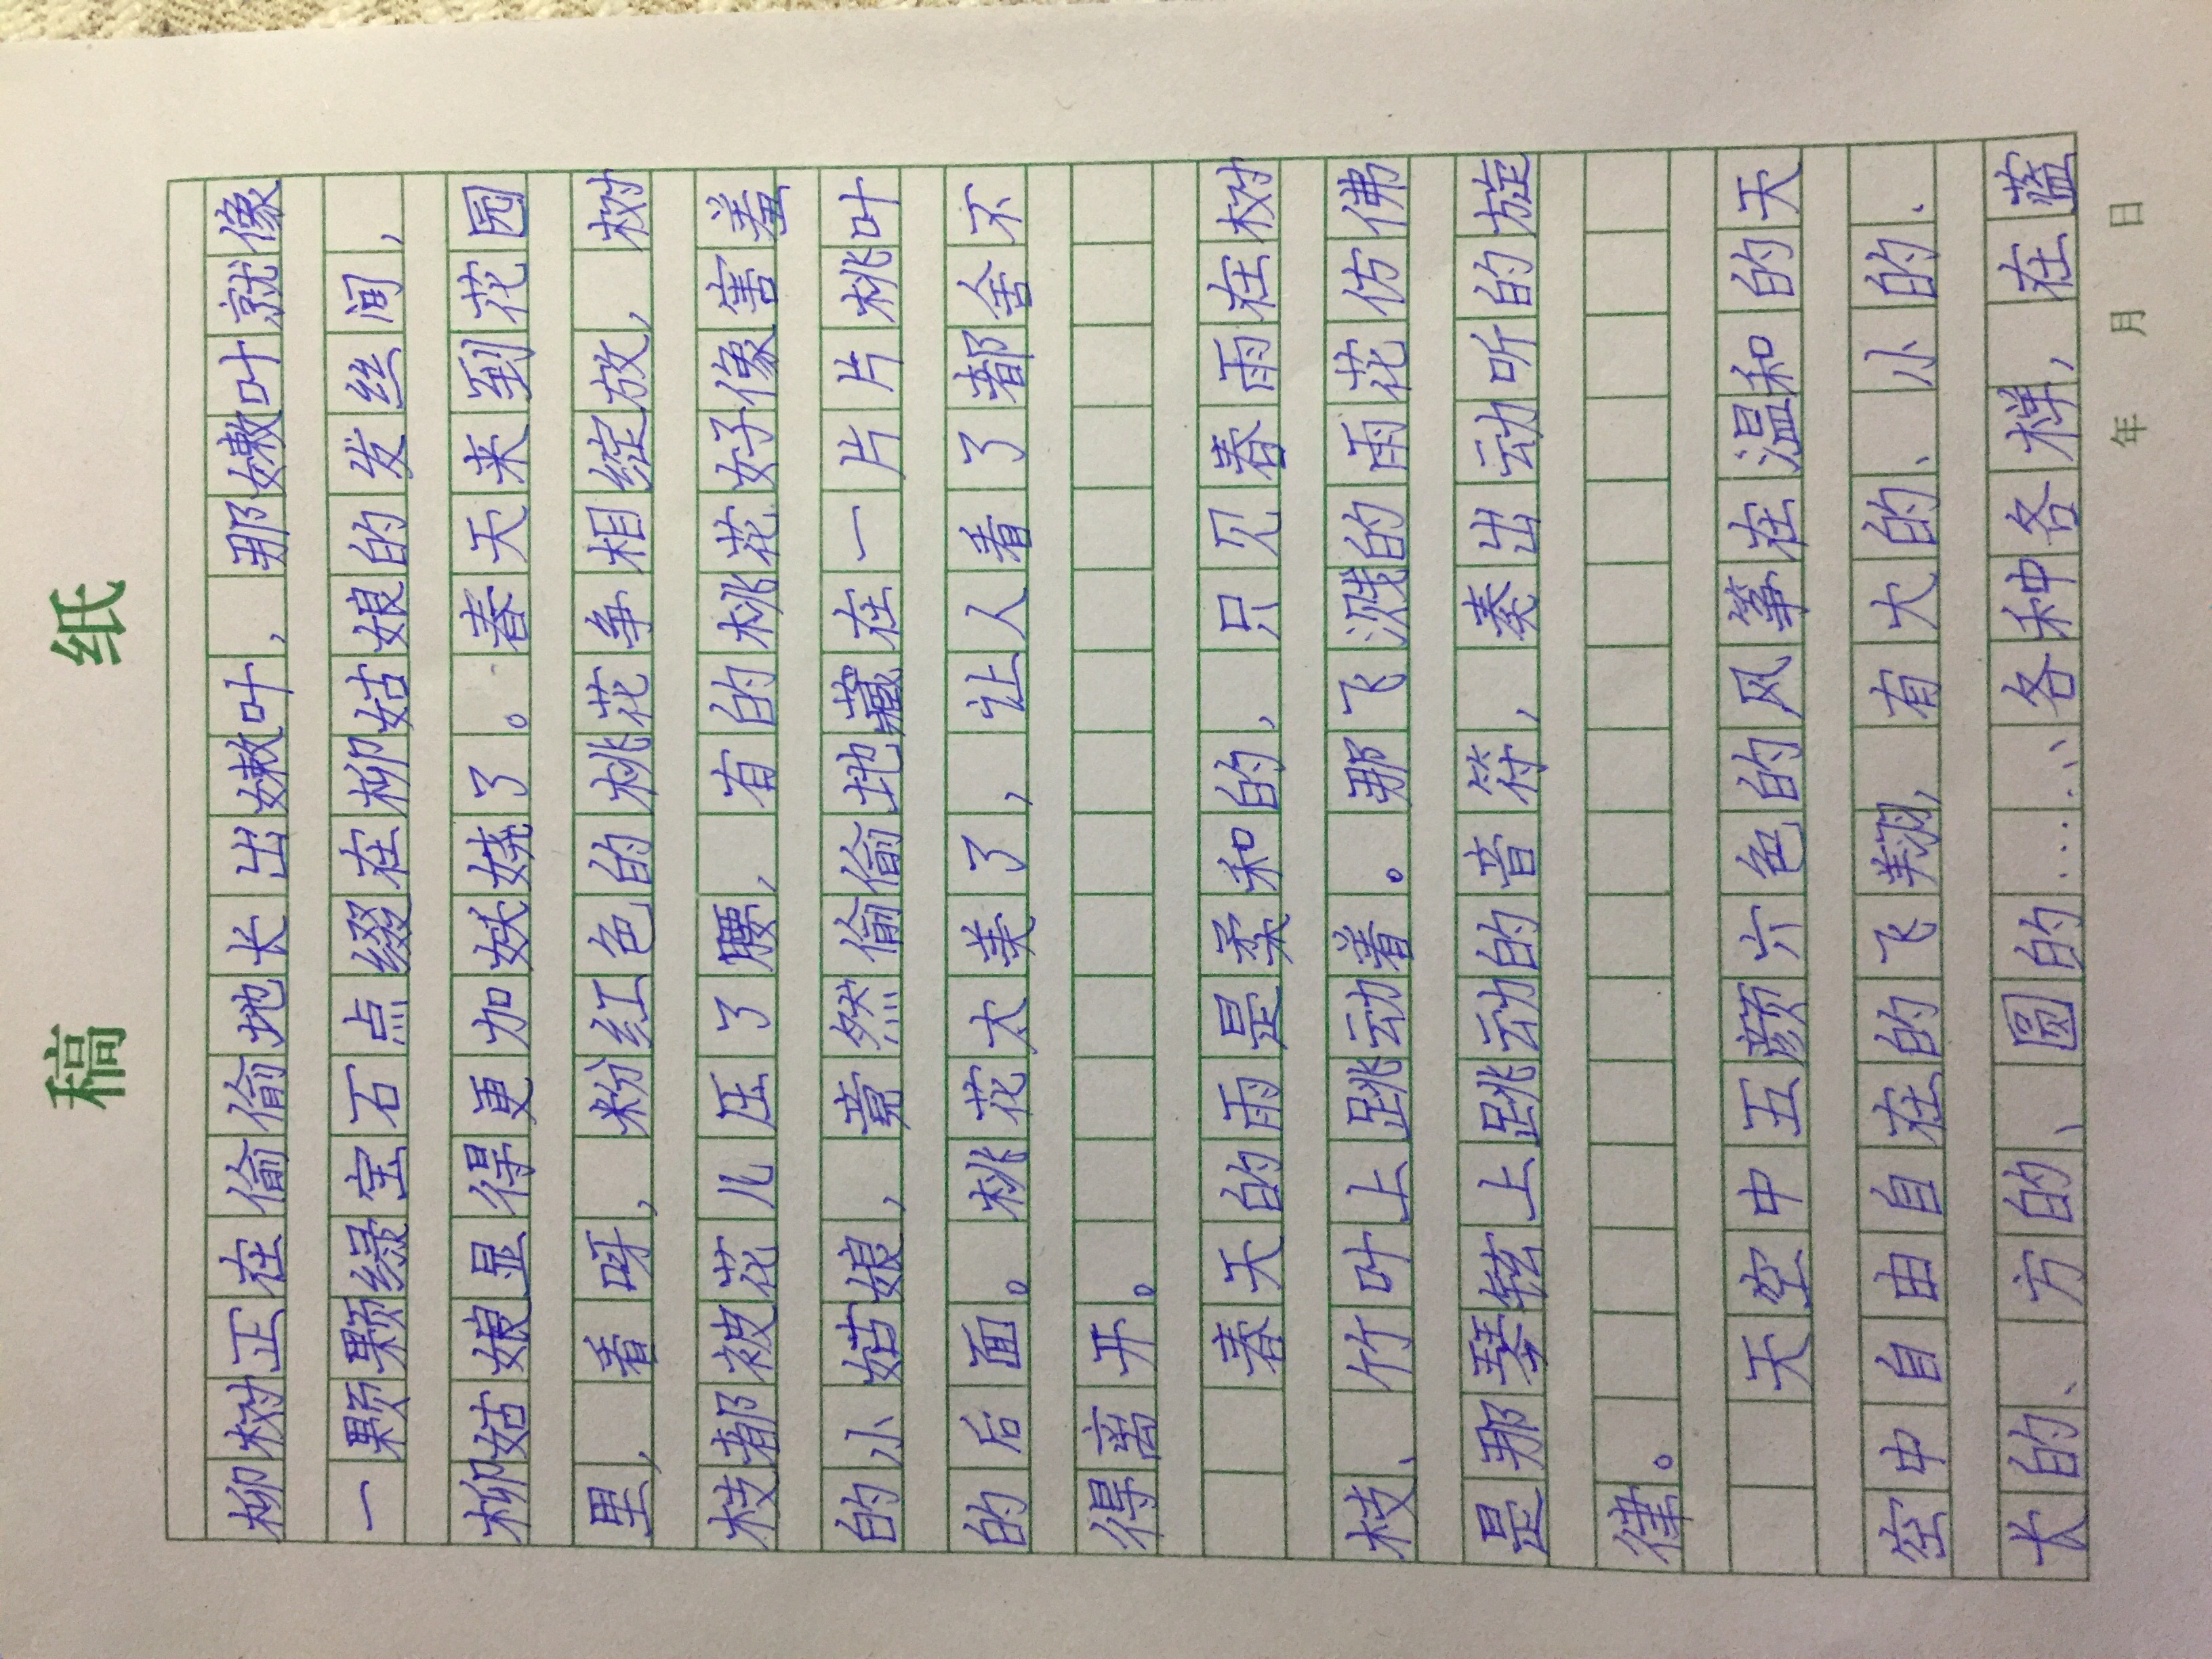 稿 纸
柳树正在偷偷地长出嫩叶，那嫩叶就像
一颗颗绿宝石点缀在柳姑娘的发丝间，
柳姑娘显得更加妖娆了。春天来到花园
里，看呀，粉红色的桃花争相绽放，树
枝都被花儿压了腰，有的桃花好像害羞
的小姑娘，竟然偷偷地藏在一片片桃叶
的后面。桃花太美了，让人看了都舍不
得离开。
春天的雨是柔和的，只见春雨在树
枝、竹叶上跳动着。那飞溅的雨花仿佛
是那琴弦上跳动的音符，奏出动听的旋
律。
天空中五颜六色的风筝在温和的天
空中自由自在的飞翔，有大的、小的、
长的、方的、圆的……、各种各样，在蓝
年 月 日